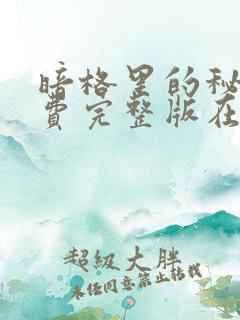 暗格里的秘
费完整版在
超级大胖
未经同意禁止转载